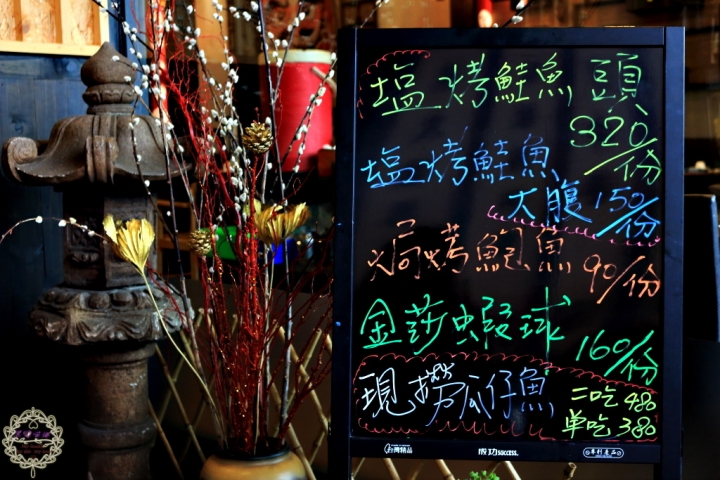 塩烤鮭魚頭
320/份
塩烤鮭魚
大腹150/份
焗烤鮑魚 90/份
金莎蝦球 160/份
現撈瓜仔魚 二吃480
単吃380
台灣精品 成功success. 專利產品